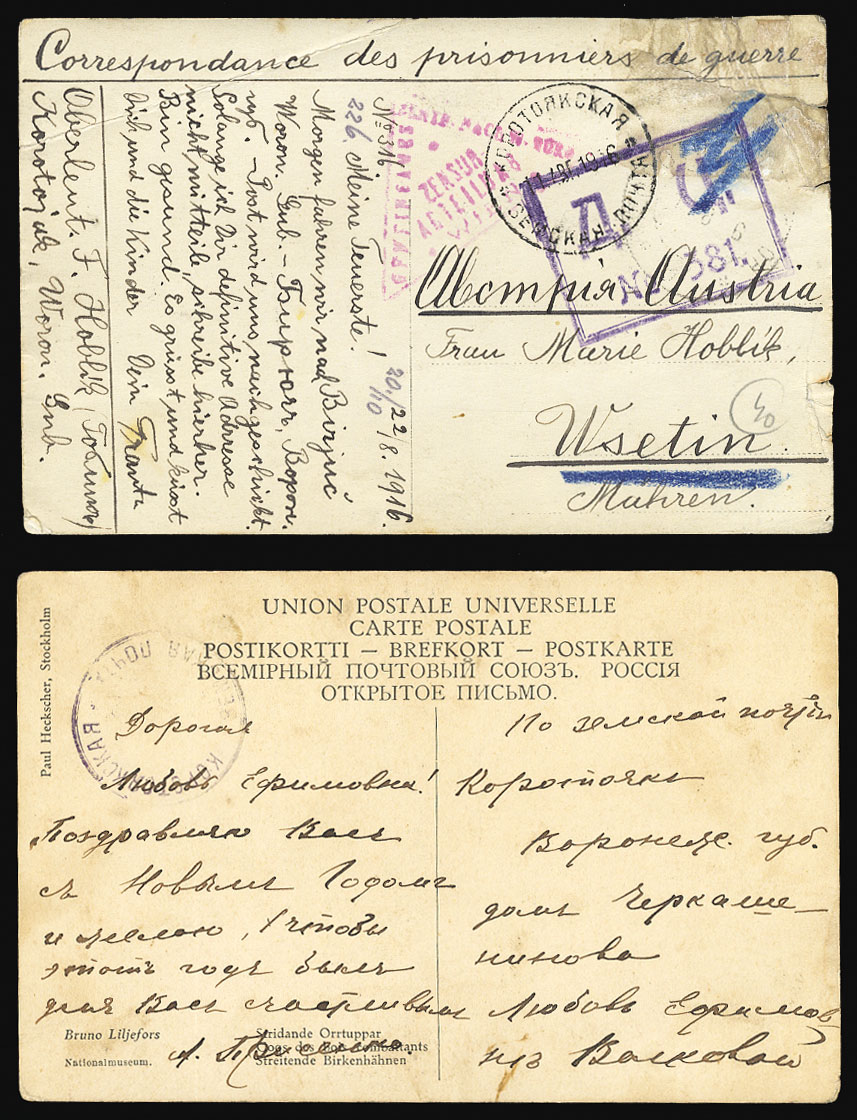 Correspondance des prisonniers de guerre
Nº 316
20./22/8. 1916.
10
226. Meine Teuerste!
Morgen fahren wir nach Birjuč
Woron. Gub. – Бирючъ, Ворон.
губ. – Post wird uns nachgeschickt.
Solange ich Dir definitive Adresse
nicht mitteile, schreibe hierher.
Bin gesund. Es grüsst und küsst
Dich und die Kinder Dein Franta
Oberleut. F. Hoblik,
Korotojak, Woron. Gub.
ZENSUR
ABTEILUNG
КОРОТОЯКСКАЯ
ЗЕМСКАЯ ПОЧТА
АВГ. 1916
Д. Ц.
No 381.
Австрия Austria
Frau Marie Hoblík,
40
Wsetin.
Mähren.
Paul Heckscher, Stockholm
UNION POSTALE UNIVERSELLE
CARTE POSTALE
POSTIKORTTI – BREFKORT – POSTKARTE
ВСЕМІРНЫЙ ПОЧТОВЫЙ СОЮЗЪ. РОССІЯ
ОТКРЫТОЕ ПИСЬМО.
КОРОТОЯКСКАЯ ЗЕМСКАЯ ПОЧТА
Дорогая
Любовь Ефимовна!
Поздравляю Васъ
съ Новымъ Годомъ
и желаю, чтобы
этотъ годъ былъ
для Васъ счастливымъ
А.
По земской почтѣ
Коротоякъ
Воронеж. губ.
домъ Черкаше-
нинова
Любовь Ефимов
нѣ Волковой
Bruno Liljefors
Nationalmuseum.
Stridande Orrtuppar
Coqs des Bois combattants
Streitende Birkenhähnen